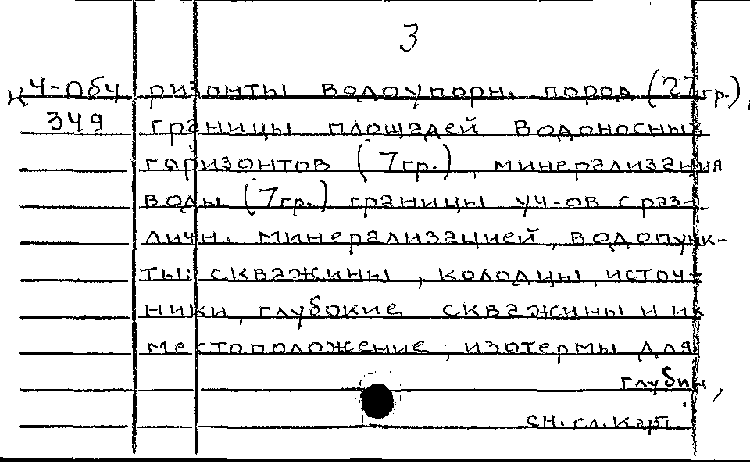 3
ц4-064 ризонты водоупорн. пород (27гр.),
349 границы площадей водоносных
горизонтов (7гр.), минерализация
воды (7гр.) границы уч-ов с раз-
личн. минерализацией, водопунк-
ты: скважины, колодцы, источ-
ники, глубокие скважины и их
местоположение, изотермы для
глубин,
сн. гл. карт.